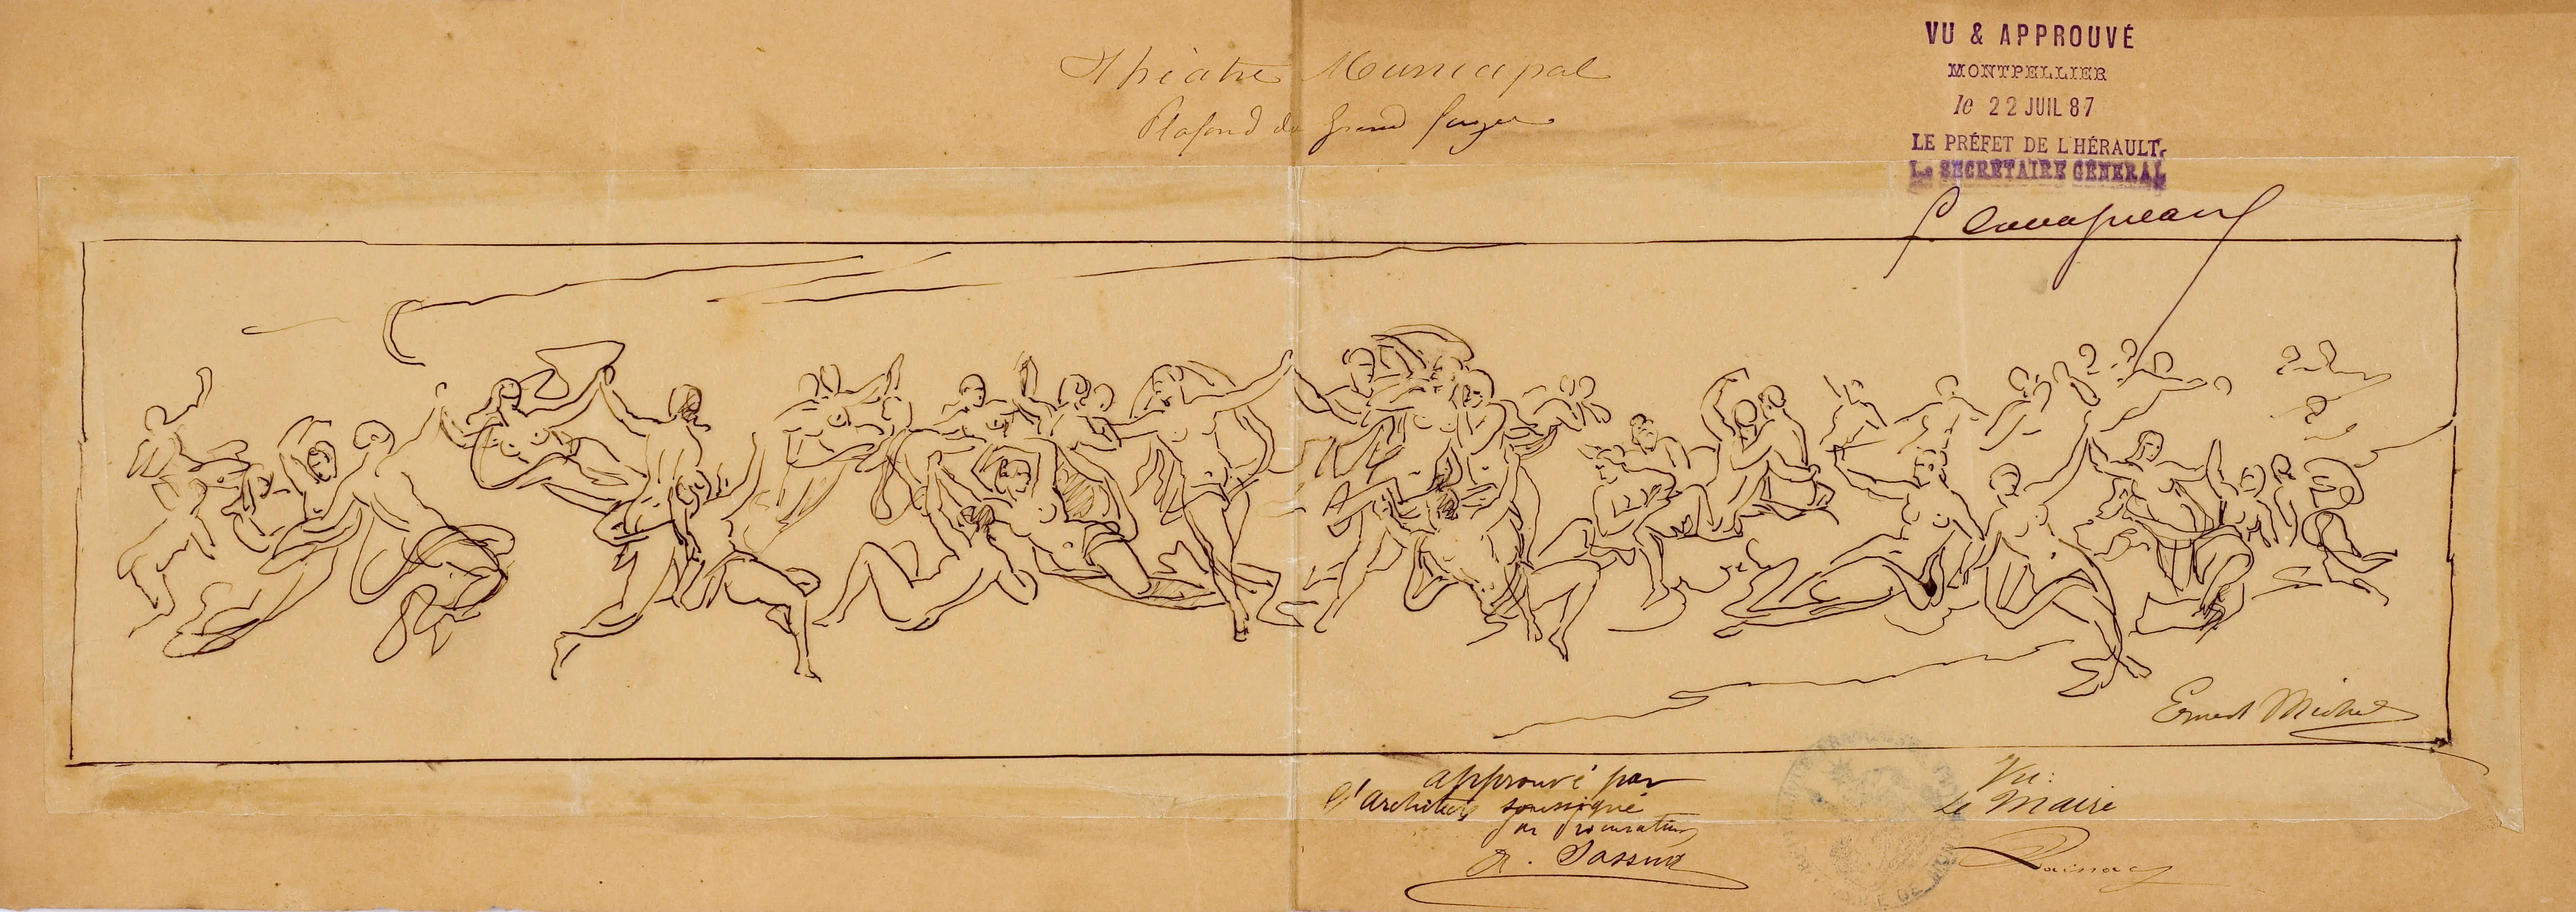 Théatre Municipal
Plafond du Grand foyer
VU & APPROUVÉ
MONTPELLIER
le 22 JUIL 87
LE PRÉFET DE L'HÉRAULT,
Le SECRÉTAIRE GÉNÉRAL
Ernest Michel
approuvé par
l'architecte soussigné
par procuration
Vu:
Le Maire